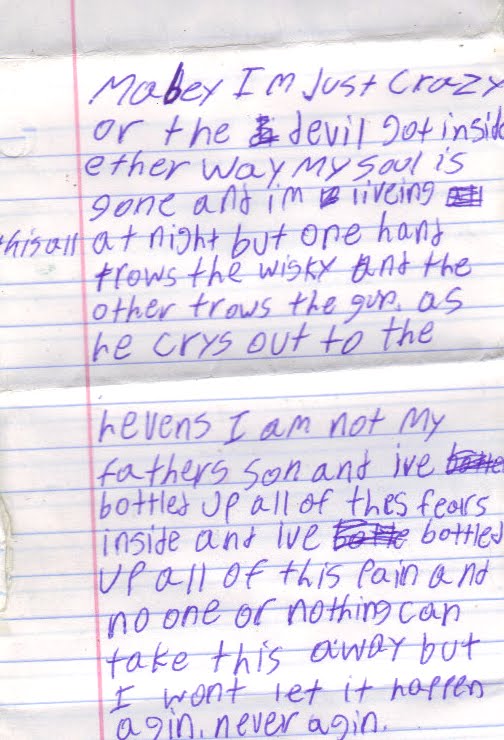 Mabey I'm Just Crazy
or the devil got inside
ether way My soul is
gone and i'm liveing
this all at night but one hand
trows the wisky and the
other trows the gun. as
he crys out to the
hevens I am not My
fathers son and ive
bottled up all of thes fears
inside and ive bottled
up all of this Pain and
no one or nothing can
take this away but
I wont let it happen
agin. never agin.